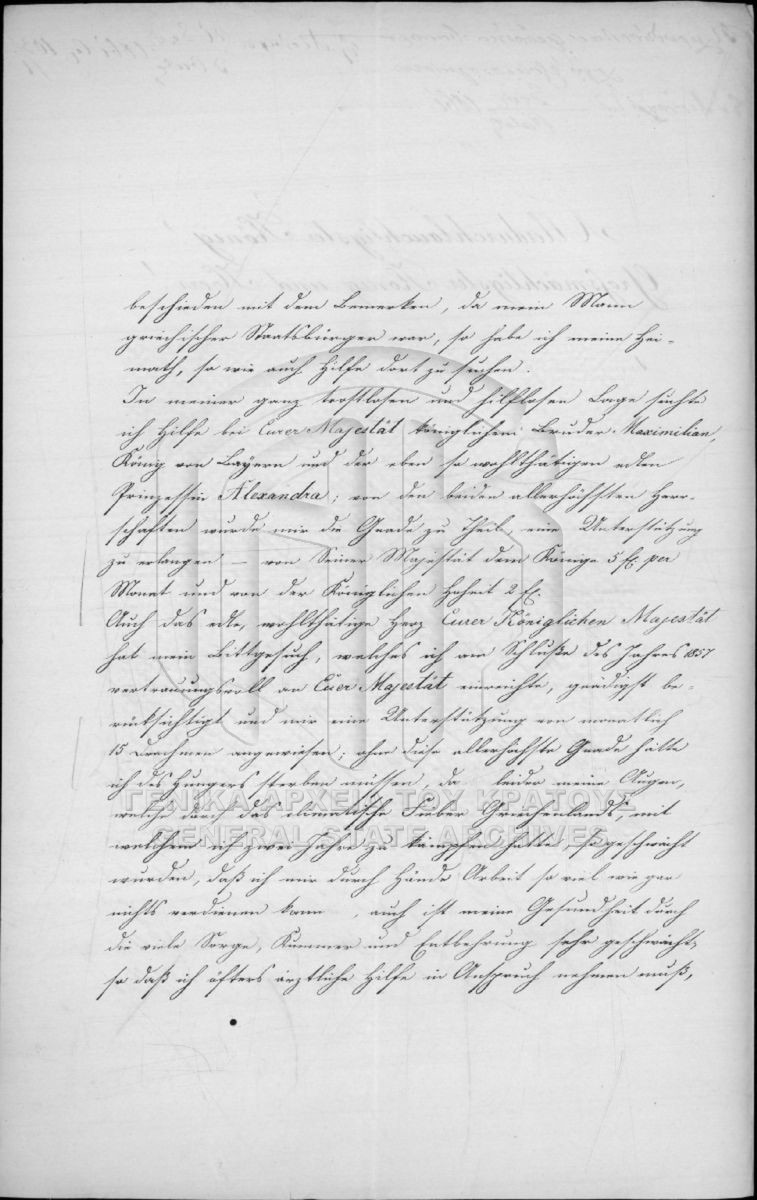 beschieden mit dem Bemerken, da mein Mann
griechischer Staatsbürger war, so habe ich meine Hei-
math, so wie auch Hilfe dort zu suchen.
In meiner ganz trostlosen und hilflosen Lage suchte
ich Hilfe bei Eurer Majestät königlichem Bruder Maximilian,
König von Bayern und der eben so wohlthätigen edlen
Prinzessin Alexandra; von den beiden allerhöchsten Herr-
schaften wurde mir die Gnade zu Theil, eine Unterstützung
zu erlangen – von Seiner Majestät dem Könige 5 fl. per
Monat und von der Königlichen Hoheit 2 fl.
Auch das edle, wohlthätige Herz Eurer Königlichen Majestät
hat mein Bittgesuch, welches ich am Schluße des Jahres 1857
vertrauungsvoll an Euer Majestät einreichte, gnädigst be-
rücksichtigt und mir eine Unterstützung von monatlich
15 Drachmen angewiesen; ohne diese allerhöchste Gnade hätte
ich des Hungers sterben müssen, da leider meine Augen,
welche durch das climatische Fieber Griechenlands, mit
welchem ich zwei Jahre zu kämpfen hatte, so geschwächt
wurden, daß ich mir durch Hände Arbeit so viel wie gar
nichts verdienen kann, auch ist meine Gesundheit durch
die viele Sorge, Kummer und Entbehrung sehr geschwächt,
so daß ich öfters ärztliche Hilfe in Anspruch nehmen muß,
ΓΕΝΙΚΑ ΑΡΧΕΙΑ ΤΟΥ ΚΡΑΤΟΥΣ
GENERAL STATE ARCHIVES